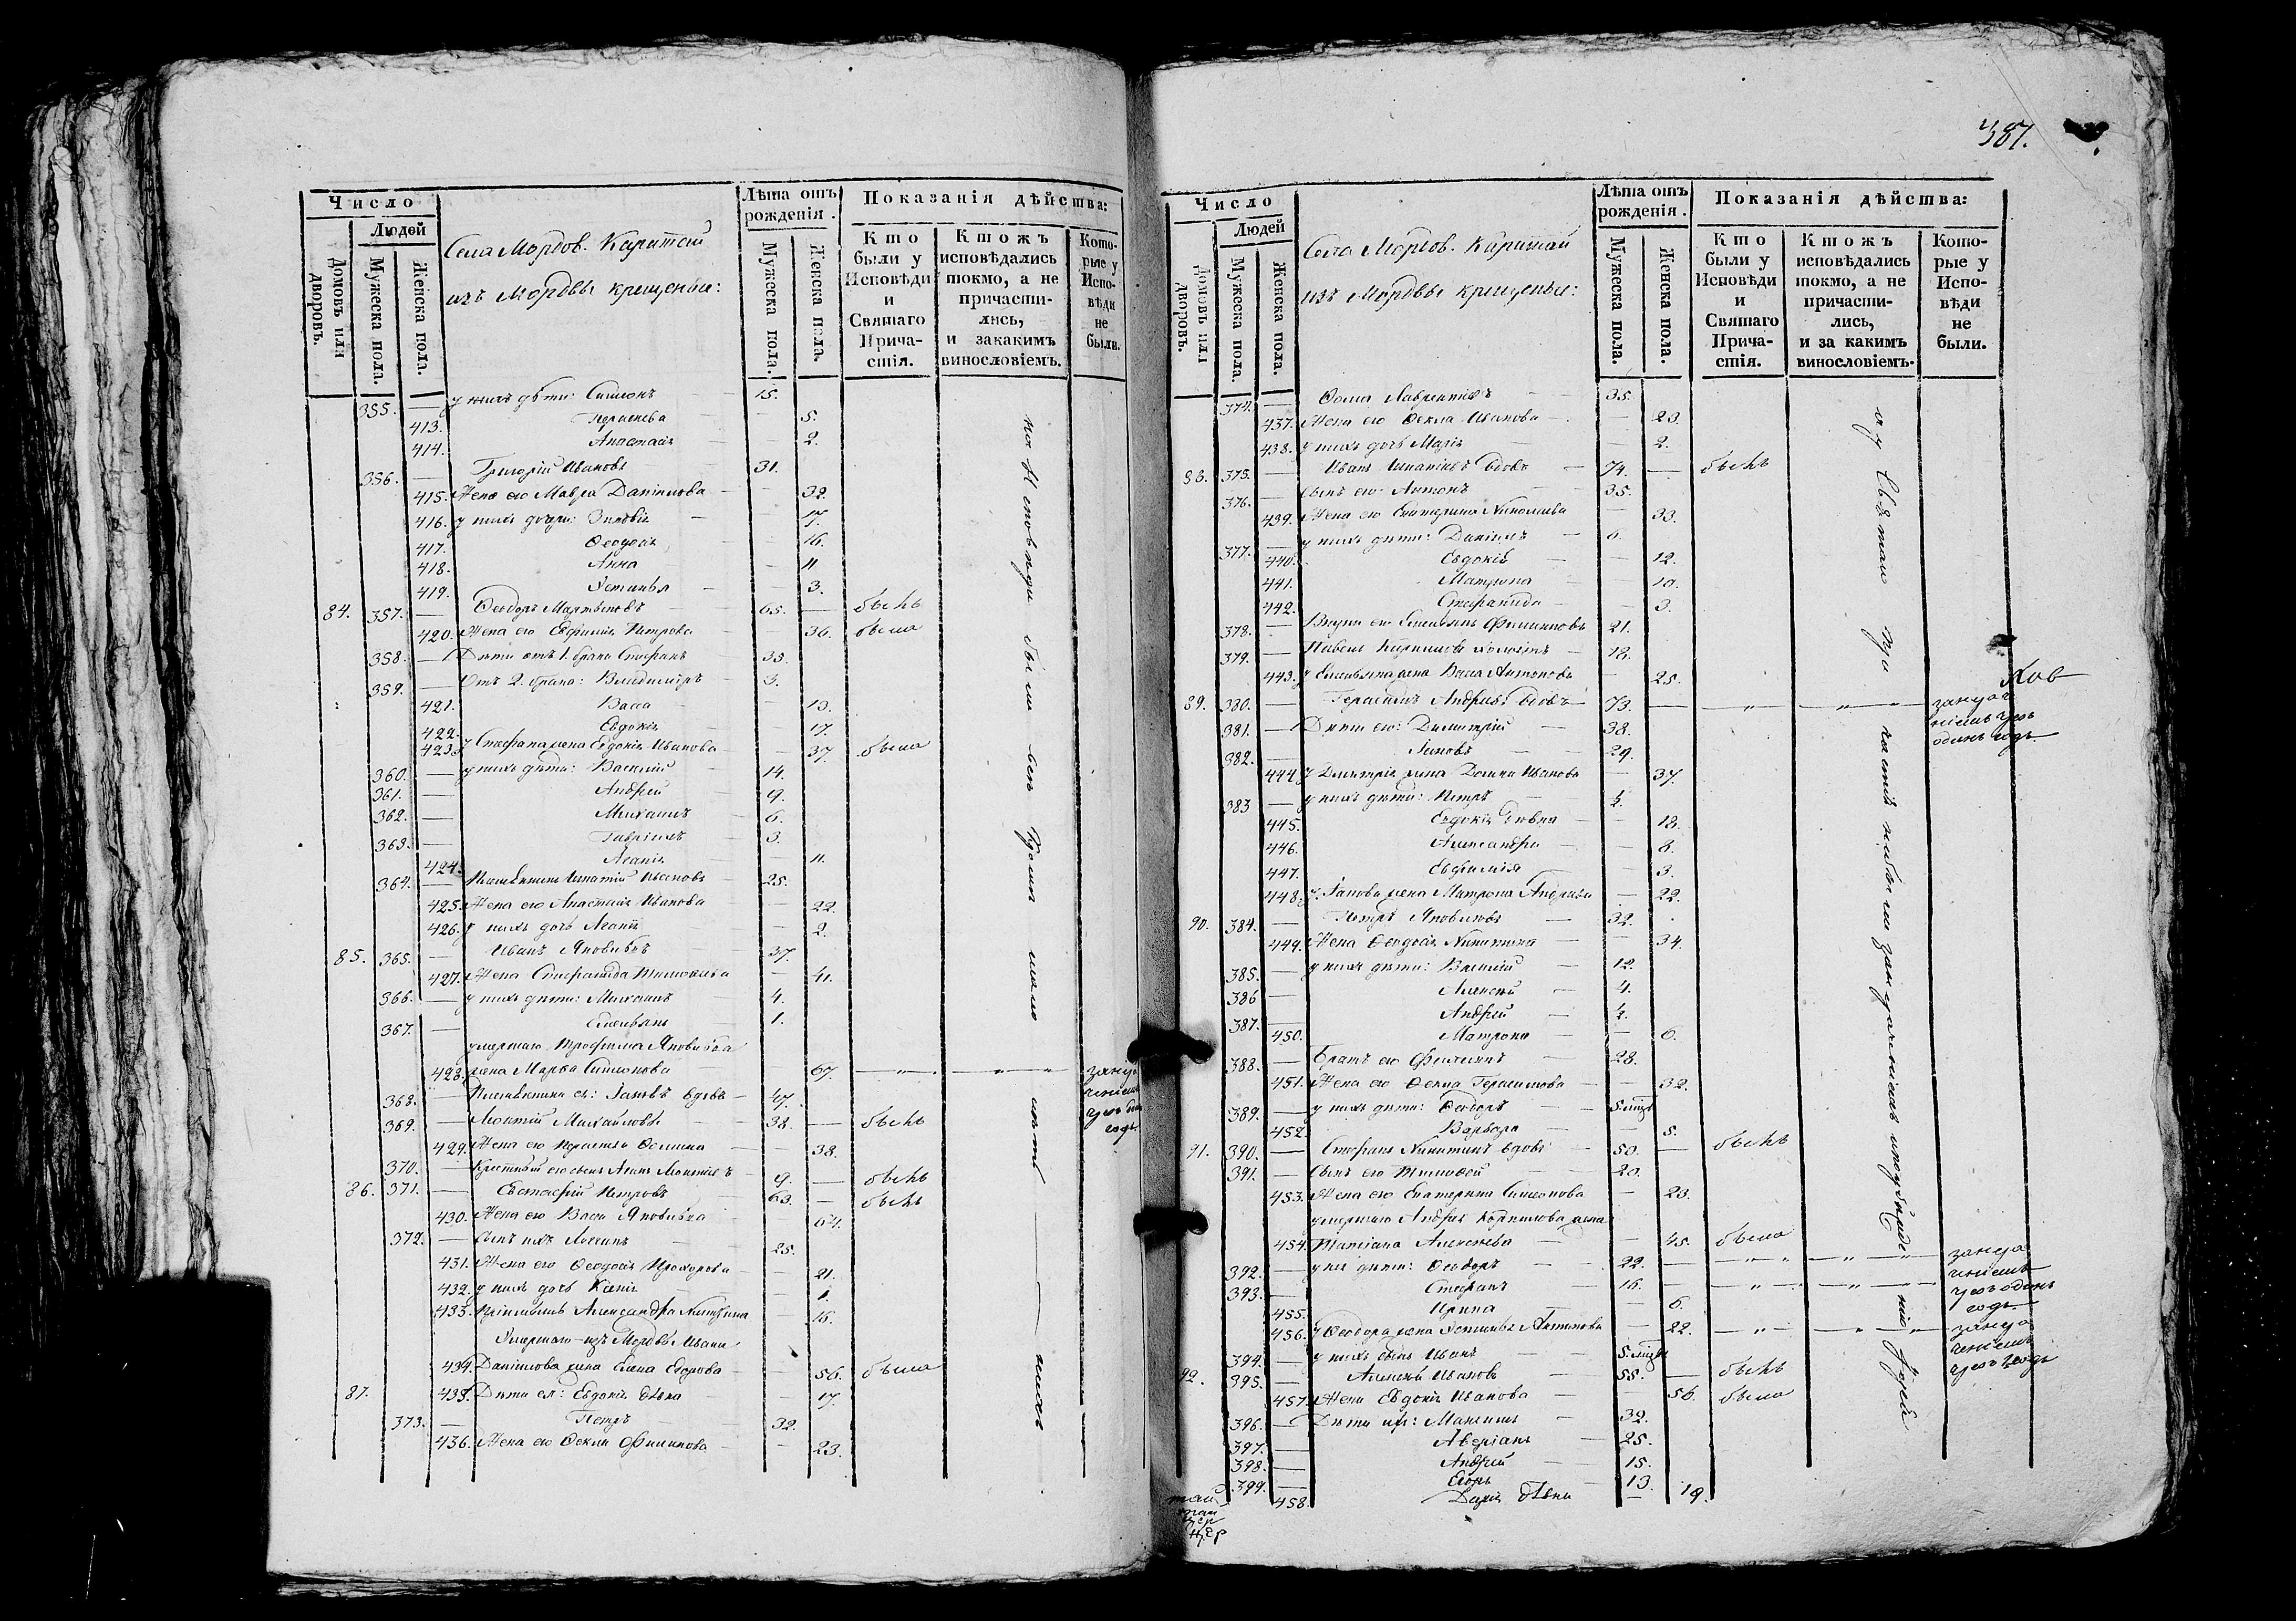 Число
Людей
Домовъ или дворовъ.
Мужеска пола.
Женска пола.
Села Мордов. Каратай
изъ Мордвы крещеные:
Лѣта отъ рожденія.
Мужеска пола.
Женска пола.
Показанія дѣйства:
Кто были у Исповѣди и Святаго Причастія.
Ктожъ исповѣдались токмо, а не причастились, и закакимъ винословіемъ.
Которые у Исповѣди не были.
355. — у нихъ дѣти: Симеонъ — 15.
413. Параскева — 5.
414. Анастасія — 2.
356. — Григорій Ивановъ — 31.
415. Жена его Мавра Даниилова — 32.
416. у нихъ дочери: Зиновія — 17.
417. Ѳеодосія — 16.
418. Анна — 11
419. Устинья — 3.
84. 357. — Ѳеодоръ Мартыновъ — 65. — былъ
420. Жена его Евфимія Петрова — 36. была
358. — Дѣти отъ 1. брака Стефанъ — 35.
359. — Отъ 2. брака: Владимиръ — 3.
421. Васса — 13.
422. Евдокія — 17.
423. у Стефана жена Евдокія Иванова — 37. была
360. — у нихъ дѣти: Василій — 14.
361. — Андрей — 9.
362. — Михаилъ — 6.
363. — Гавріилъ — 3.
424. Агапія — 11.
364. — Племянникъ Игнатій Ивановъ — 25.
425. Жена его Анастасія Иванова — 22.
426. у нихъ дочь Агапія — 2.
85. 365. — Иванъ Яковлевъ — 37.
427. Жена Стефанида Тимофеева — 41.
366. — у нихъ дѣти: Михаилъ — 4.
367. — Емельянъ — 1.
умершаго Трофима Яковлева
428. жена Марѳа Симеонова — 67. — „ — „ —
368. — Племянники ея: Іаковъ вдовъ — 47.
369. — Леонтій Михайловъ — 38. — былъ
429. Жена его Параскева Ѳомина — 38.
370. — 9. — былъ
86. 371. — Евстафій Петровъ — 63. — былъ
430. Жена его Васса Яковлева — 64.
372. — Сынъ ихъ — 25.
431. Жена его Ѳеодосія Прохорова — 21.
432. у нихъ дочь Ксенія — 1.
433. Александра Никитина — 15.
Умершаго изъ Мордвы Ивана
434. Даниилова жена Елена Егорова — 56. была
87. 435. Дѣти ея: Евдокія дѣвка — 17.
373. — Петръ — 32.
436. Жена его Ѳекла Филиппова — 23.
на Исповѣди были
387.
Число
Людей
Домовъ или дворовъ.
Мужеска пола.
Женска пола.
Села Мордов. Каратай
изъ Мордвы крещеные:
Лѣта отъ рожденія.
Мужеска пола.
Женска пола.
Показанія дѣйства:
Кто были у Исповѣди и Святаго Причастія.
Ктожъ исповѣдались токмо, а не причастились, и за какимъ винословіемъ.
Которые у Исповѣди не были.
374. — Ѳома Лаврентіевъ — 35.
437. Жена его Ѳекла Иванова — 23.
438. у нихъ дочь Марія — 2.
88. 375. — Иванъ Игнатіевъ вдовъ — 74. — былъ
376. — Сынъ его Антонъ — 35.
439. Жена его Екатерина Николаева — 33.
377. — у нихъ дѣти: Даніилъ — 6.
440. Евдокія — 12.
441. Матрона — 10.
442. Стефанида — 3.
378. — Внуки его Емельянъ Филипповъ 21.
379. — Павелъ Кириловъ холостъ — 18.
443. у Емельяна жена Васса Антонова — 25.
89. 380. — Герасимъ Андреевъ вдовъ — 73. — „ — „ —
381. — Дѣти его: Димитрій — 38.
382. — Іаковъ — 29.
444. у Димитрія жена Домна Иванова — 37.
383 — у нихъ дѣти: Петръ
445. Евдокія дѣвка — 18.
446. Александра — 8.
447. Евфимія — 3.
448. у Іакова жена Матрона Андреева — 22.
90. 384. — Петръ Яковлевъ — 32.
449. Жена Ѳеодосія Никитина — 34.
385. — у нихъ дѣти: Василій — 12.
386 — Алексей — 4.
387. — Андрей
450. Матрона — 6.
388. — Братъ его Филиппъ — 28.
451. Жена его Ѳекла Герасимова — 32.
389. — у нихъ дѣти: Ѳеодоръ — 5. мѣцъ
452. Варвара — 5.
91. 390. — Стефанъ Никитинъ вдовъ — 50. — былъ
391. — Сынъ его Тимофей — 20.
453. Жена его Екатерина Симеонова — 23.
умершаго Андрея Корнилова жена
454. Татіана Алексеева — 45. была
392. — у нея дѣти: Ѳеодоръ — 22. — „ — „ —
393. — Стефанъ — 16. — „ — „ —
455. Ирина — 6.
456. у Ѳеодора жена Устинья Антонова — 22. — „ — „ —
394. — у нихъ сынъ Иванъ — 5. мѣцъ
92. 395. — Алексей Ивановъ — 55. — былъ
457. Жена Евдокія Иванова — 56. была
396. — Дѣти ихъ: Максимъ — 32.
397. — Аверіанъ — 25.
398. — Андрей — 15.
399. — Егоръ — 13.
458. Дарія дѣвка — 19.